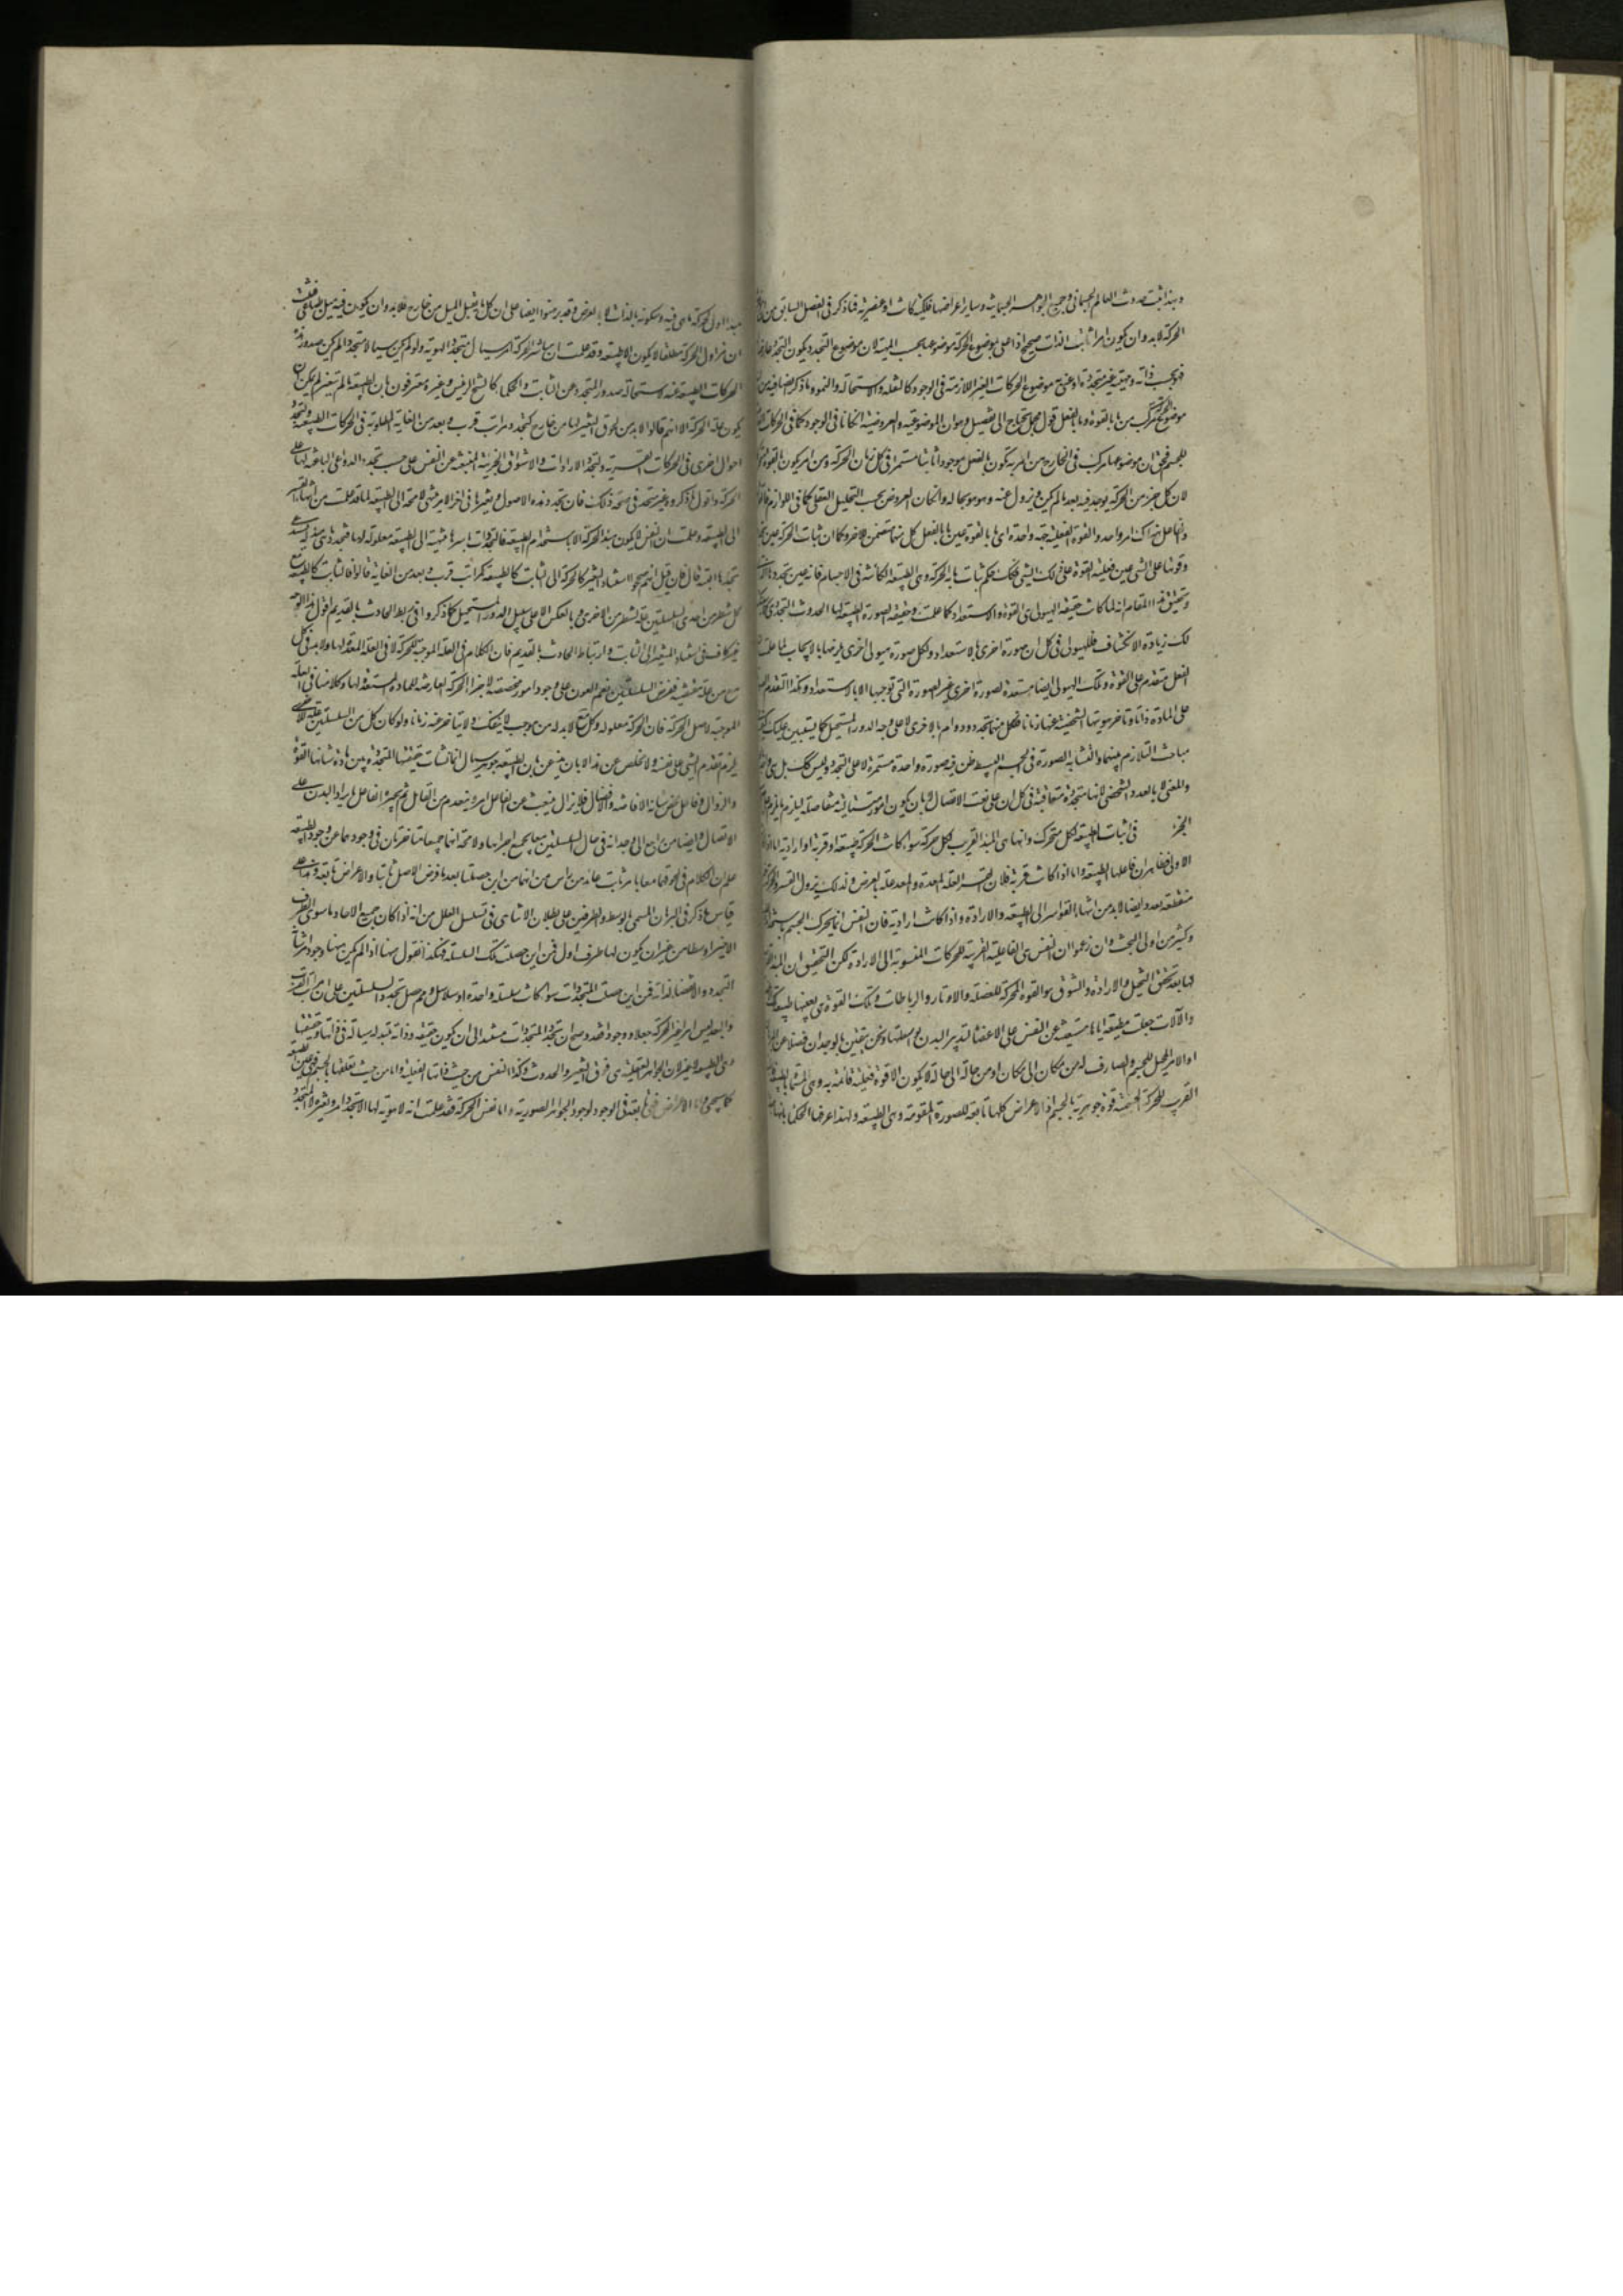 وبهذا ثبت حدوث العالم الجسمانى وجميع الجواهر الجسمانية وساير اعراضها فلكية كانت او عنصرية فما ذكر فى الفصل السابق من
الحركة لابد وان يكون امرا ثابت الذات صحيح اذا عنى بموضوع الحركة موضوعها بحسب المهية لان موضوع التجدد يكون التجدد عارضا
فهو بحسب ذاته ومهيته غير متجدد او عنى به موضوع الحركات الغير اللازمة فى الوجود كالنقلة والاستحالة والنمو وما ذكر ايضا فيه من
موضوع الحركة مركب من ما بالقوة وما بالفعل قول مجمل يحتاج الى تفصيل وهو ان الموضوعية والعروضية اذا كانا فى الوجود كما فى الحركات
للجسم فحق ان موضوعها مركب فى الخارج من امر به يكون بالفعل موجودا ثابتا مستمرا فى كل زمان الحركة ومن امر يكون بالقوة
لان كل جزء من الحركة يوجد فيه بعد ما لم يكن ويزول عنه وهو هو بحاله وان كان العروض بحسب التحليل العقلى كما فى اللوازم
وفاعل هناك امر واحد والقوة الفعلية جهة واحدة اى ما بالقوة عين ما بالفعل كل منهما متضمن للاخر وكما ان ثبات الحركة عين
وقوتها على الشى عين فعلية القوة على ذلك الشى فكذلك حكم ثبات ما به الحركة وهى الطبيعة الكائنة فى الاجسام فانه عين تجددها
وتحقيق هذا المقام انه لما كانت حقيقة الهيولى هى القوة والاستعداد كما علمت وحقيقة الصورة الطبيعة لها الحدوث التجددى
لك زيادة الانكشاف فللهيولى فى كل ان صورة اخرى بالاستعداد ولكل صورة هيولى اخرى يلزمها بالايجاب لما علمت
الفعل متقدم على القوة وتلك الهيولى ايضا مستعدة لصورة اخرى غير الصورة التى توجبها لا بالاستعداد وهكذا لتقدم
على المادة ذاتا وتاخر هويتها الشخصية عنها زمانا فلكل منهما تجدد ودوام بالاخرى لا على وجه الدور المستحيل كما يستبين عليك
مباحث التلازم بينهما ولتشابه الصورة فى الجسم البسيط ظن فيه صورة واحدة مستمرة لا على التجدد وليس كذلك بل هى
والمعنى لا بالعدد الشخصى لانها متجددة متعاقبة فى كل ان على نعت الاتصال لا بان يكون امورا متباينة متفاصلة ليلزم ما يلزم على
الجزء فى اثبات الطبيعة لكل متحرك وانها هى المبدا القريب لكل حركة سواء كانت الحركة طبيعية او قسرية او ارادية اما اذا
الاولى فظاهر ان فاعلها الطبيعة واما اذا كانت قسرية فلان القسر العلة المعدة والمعد علة بالعرض ولذلك يزول القسر والحركة
منقطعة بعد وايضا لابد من انتهاء القواسر الى الطبيعة والارادة واذا كانت ارادية فان النفس انما يحرك الجسم باستخدام
وكثير من اولى البحث وان زعموا ان النفس هى الفاعلية القريبة للحركات المنسوبة الى الارادة لكن التحقيق ان المبدا
لها بعد تحقق التخيل والارادة والشوق هو القوة المحركة للعضلة والاوتار والرباطات وتلك القوة هى بعينها طبيعة
والآلات جعلت مطيعة اياها منبعثة عن النفس على الاعضا لتدبير البدن بواسطتها ونحن نتيقن بالوجدان فضلا عن
او الامر المحيل للجسم والصارف له من مكان الى مكان او من حالة الى حالة لا يكون الا قوة فعلية قائمة به وهى المسماة بالطبيعة
القريب للحركة الجسمية قوة جوهرية بالجسم اذ الاعراض كلها تابعة للصورة المقومة وهى الطبيعة ولهذا عرفها الحكما بانها
مبدا اول لحركة ما هى فيه وسكونه بالذات لا بالعرض وقد برهنوا ايضا على ان كل ما يقبل الميل من خارج فلابد وان يكون فيه ميل طباعى فثبت
ان مزاول الحركة مطلقا لا يكون الا طبيعة وقد علمت ان مباشر الحركة امر سيال متجدد الهوية ولو لم يكن سيالا متجددا لم يكن صدور هذه
الحركات الطبيعة عنه لاستحالة صدور المتجدد عن الثابت والحكما كالشيخ الرئيس وغيره معترفون بان الطبيعة ما لم يتغير لم يكن ان
يكون علة الحركة الا انهم قالوا لابد من لحوق التغير لها من خارج كتجدد مراتب قرب وبعد من الغاية المطلوبة فى الحركات الطبيعة وكتجدد
احوال اخرى فى الحركات القسرية وكتجدد الارادات والاشواق الجزئية المنبعثة عن النفس على حسب تجدد الدواعى الباعثة لها على
الحركة واقول ما ذكروه غير متجه فى صحة ذلك فان تجدد هذه الاصول وتغيرها فى اخر الامر ينتهى لا محة الى الطبيعة لما قد علمت من انتهاء القسر
الى الطبيعة وعلمت ان النفس لا يكون مبدا الحركة الا باستخدام الطبيعة فالتجددات باسرها منتهية الى الطبيعة معلولة لها فتجددها يستدعى
تجددها البتة قال فان قيل انهم صححوا استناد المتغير كالحركة الى الثابت كالطبيعة كمراتب قرب وبعد من الغاية قالوا فالثابت كالطبيعة مع
كل شطر من احدى السلسلتين علة لشطر من الاخرى وبالعكس لا على سبيل الدور المستحيل كما ذكروا فى ربط الحادث بالقديم اقول هذا الوجه
غير كاف فى استناد المتغير الى الثابت وارتباط الحادث بالقديم فان الكلام فى العلة الموجبة للحركة لا فى العلة المعدة لها ولابد فى كل
مع من علة مقتضية ففرض السلسلتين نعم العون على وجود امور مخصصة لاجزا الحركة العارضة للمادة المستعدة لها وكلامنا فى العلة
الموجبة لاصل الحركة فان الحركة معلولة وكل مع لابد له من موجب لا ينفك ولا يتاخر عنه زمانا ولو كان كل من السلسلتين علة للاخرى
يلزم تقدم الشى على نفسه ولا مخلص عن هذا الا بان يذعن بان الطبيعة جوهر سيال انما نشات حقيقتها المتجددة بين مادة شانها القوة
والزوال وفاعل محض شانه الافاضة والافضال فلا يزال ينبعث عن الفاعل امر وينعدم من القابل ثم يجبره الفاعل بايراد البدل على
الاتصال وايضا من راجع الى وجدانه فى حال السلسلتين معا بجميع اجزائها ولا محة انها جميعا متاخرتان فى وجودهما عن وجود الطبيعة
علم ان الكلام فى لحوقهما معا بامر ثابت عائد من راس من انهما من اين حصلتا بعد ما فرض الاصل ثابتا والاعراض تابعة وهذا على
قياس ما ذكر فى البرهان المسمى بالوسط والطرفين على بطلان اللاتناهى فى تسلسل العلل من انه اذا كان جميع الاحاد ما سوى الطرف
الاخير اوساطا من غير ان يكون لها طرف اول فمن اين حصلت تلك السلسلة فهكذا نقول ههنا اذا لم يكن ههنا وجود امر شانه
التجدد والانقضا لذاته فمن اين حصلت المتجددات سواء كانت سلسلة واحدة او سلاسل ومم حصل تجدد السلسلتين على ان مراتب القرب
والبعد ليس امرا غير الحركة جعلا ووجودا فقد وضح ان تجدد المتجددات مستند الى امر يكون حقيقته وذاته متبدلة سيالة فى ذاتها وحقيقتها
وهى الطبيعة لا غير لان الجواهر العقلية هى فوق التغير والحدوث وكذا النفس من حيث ذاتها العقلية واما من حيث تعلقها بالجسم فهى عين الطبيعة
كما سيجى واما الاعراض فهى تابعة فى الوجود لوجود الجواهر الصورية واما نفس الحركة فقد علمت انه لا هوية لها الا تجدد امر وتغيره لا المتجدد